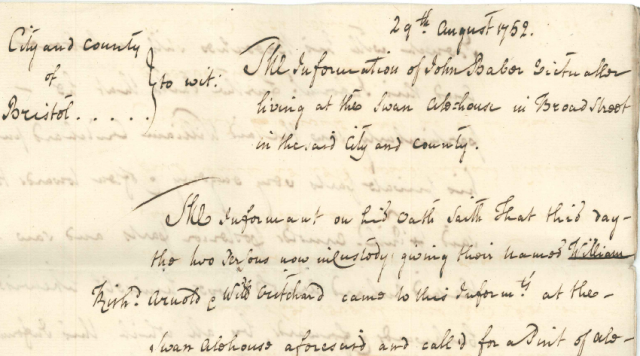 29th. August 1762.
City and County
of
Bristol . . . . .
} to wit:
The Information of John Baber Victualler
living at the Swan Alehouse in Broad Street
in the said City and County.
The Informant on his Oath Saith That this day
the two Persons now in Custody giving their names William
Richd. Arnold & Willm Pritchard came to this Informts. at the
Swan Alehouse aforesaid and call'd for a Pint of Ale